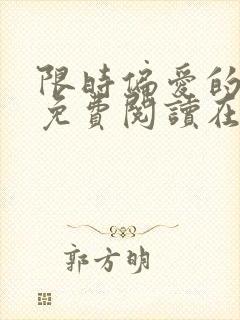 限時偏愛的
免費閱讀在
郭方明